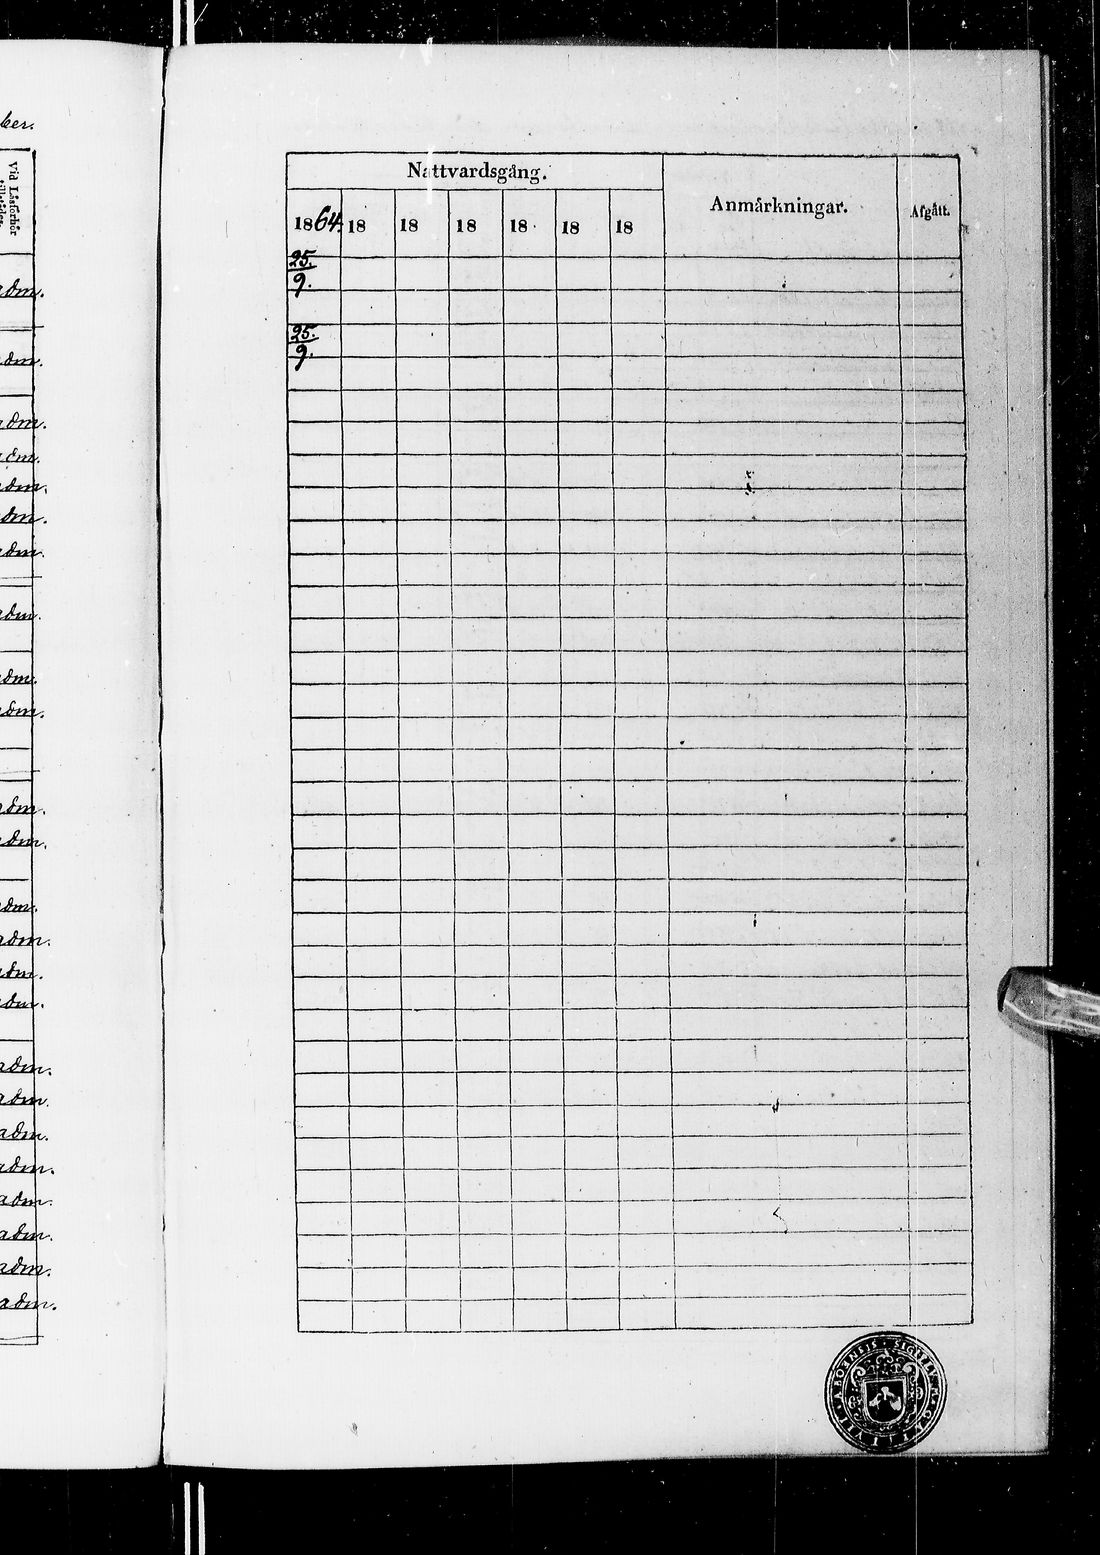 ker.
Vid Läsförhör
adm.
adm.
adm.
adm.
adm.
adm.
adm.
adm.
adm.
adm.
adm.
adm.
adm.
adm.
adm.
adm.
adm.
adm.
adm.
adm.
adm.
adm.
adm.
adm.
Nattvardsgång.
Anmärkningar.
Afgått.
1864. 18 18 18 18 18 18
25.
9.
25.
9.